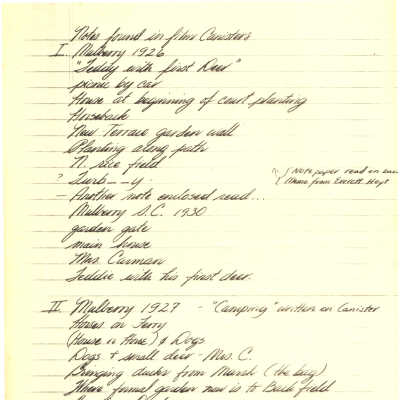 Notes found in film Canisters
I. Mulberry 1926
"Teddy with first Deer"
picnic by car
House at beginning of court planting
Horseback
New Terrace garden wall
Planting along path
N. rice field
? Turb--y.
- Another note enclosed read...
Mulberry S.C. 1930
garden gate
main house
Mrs. Curman
Teddie with his first deer.
Note paper read on
Memo from Everett Hoyt
II. Mulberry 1927 - "Camping" written on Canister
Horses on Ferry
(House in Horse) & Dogs
Dogs & small deer - Mrs. C.
Bringing ducks from Marsh (the bag)
Where formal garden now is to Back field